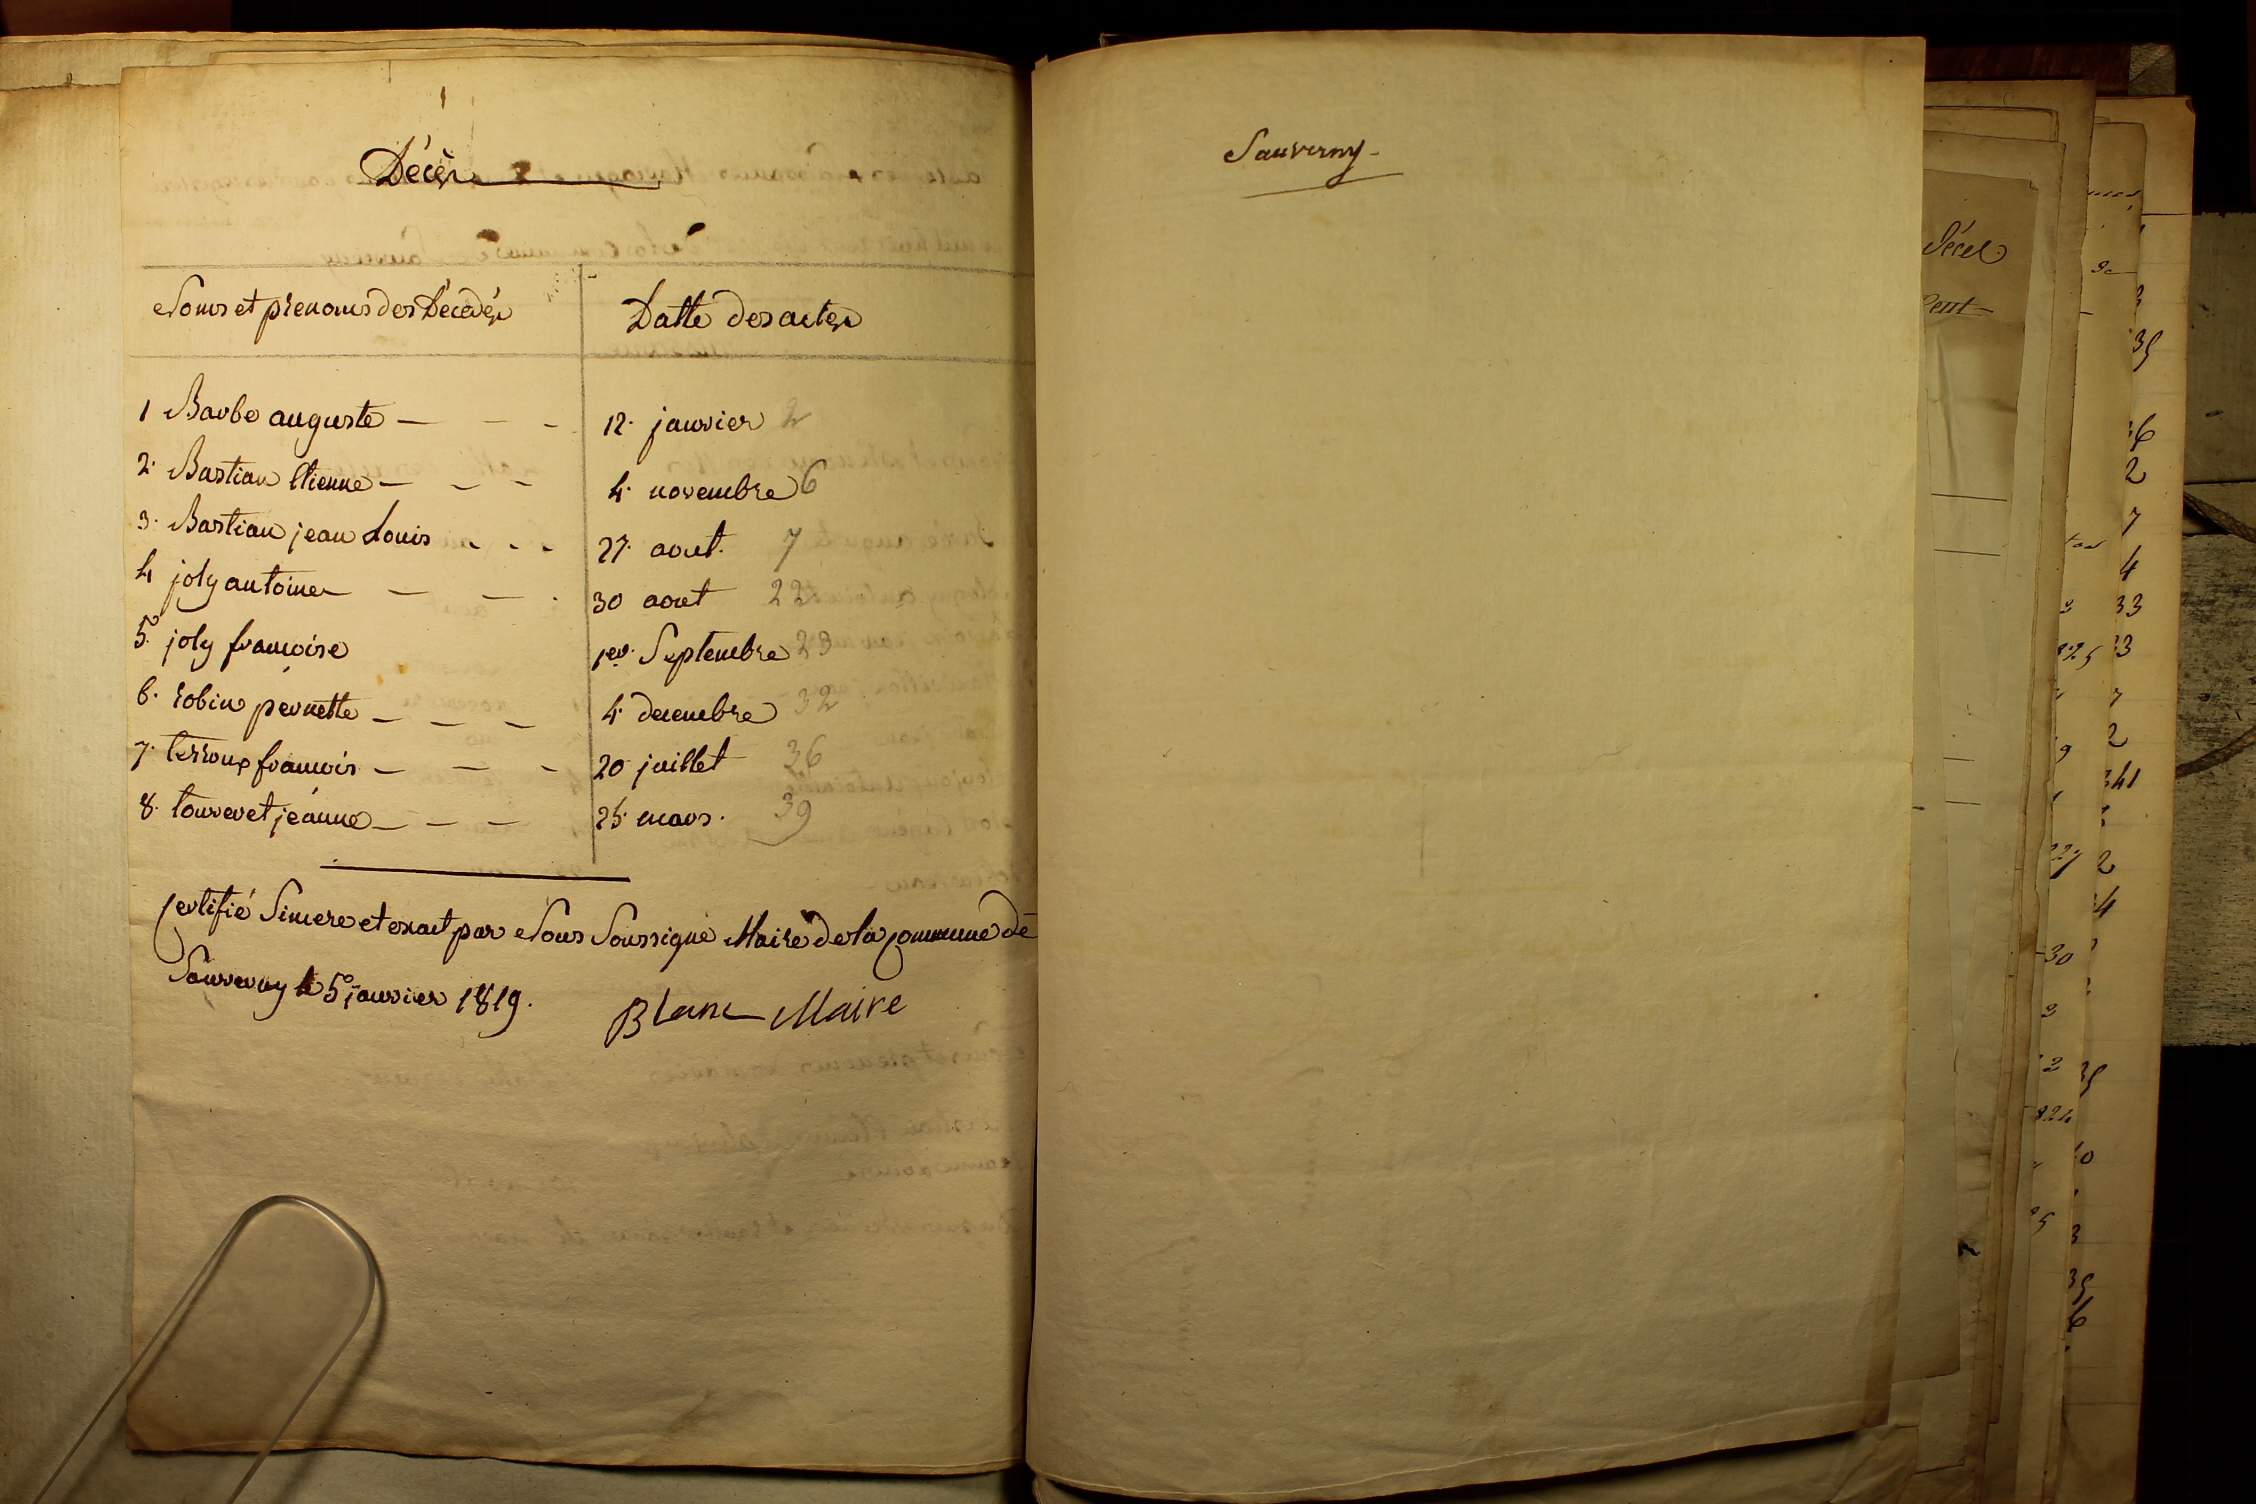 Décès
Noms et prenoms des Décédés
Datte des actes
1 Barbe auguste — — — 12. janvier 2
2. Bastian Etienne — — — 4. novembre 6
3. Bastian jean Louis — — — 27. aout. 7
4 joly antoine — — — 30 aout 22
5. joly francoise 1er. Septembre 23
6. robin pernette — — — 4. decembre 32
7. terroux francois — — — 20 juillet 36
8. tourevet jeanne — — — 25. mars. 39
Certifié Sincere et exact par Nous Soussigné Maire de la Commune de
Sauverny le 5 janvier 1819.
Blanc Maire
Sauverny